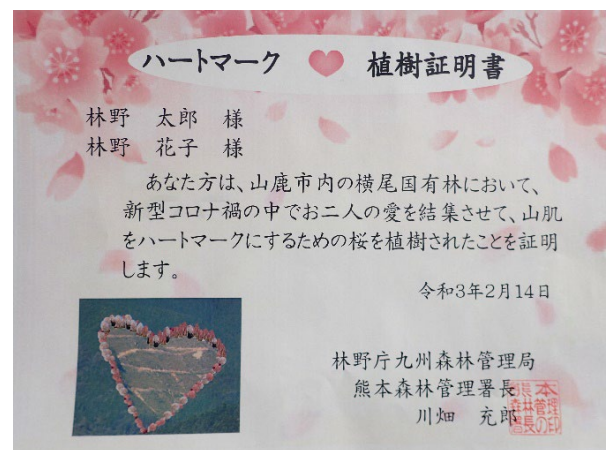 ハートマーク ♥ 植樹証明書
林野 太郎 様
林野 花子 様
あなた方は、山鹿市内の横尾国有林において、
新型コロナ禍の中でお二人の愛を結集させて、山肌
をハートマークにするための桜を植樹されたことを証明
します。
令和3年2月14日
林野庁九州森林管理局
熊本森林管理署長
川畑 充郎